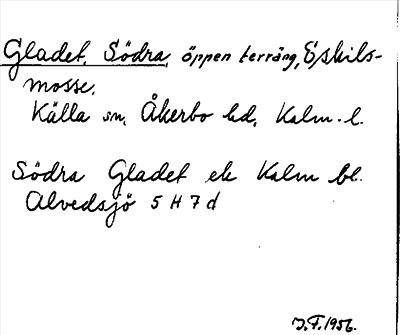 Gladet, Södra, öppen terräng, Eskils-
mosse,
Källa sn, Åkerbo hd, Kalm. l.
Södra Gladet ek Kalm bl.
Alvedsjö 5 H 7 d
J.F. 1956.